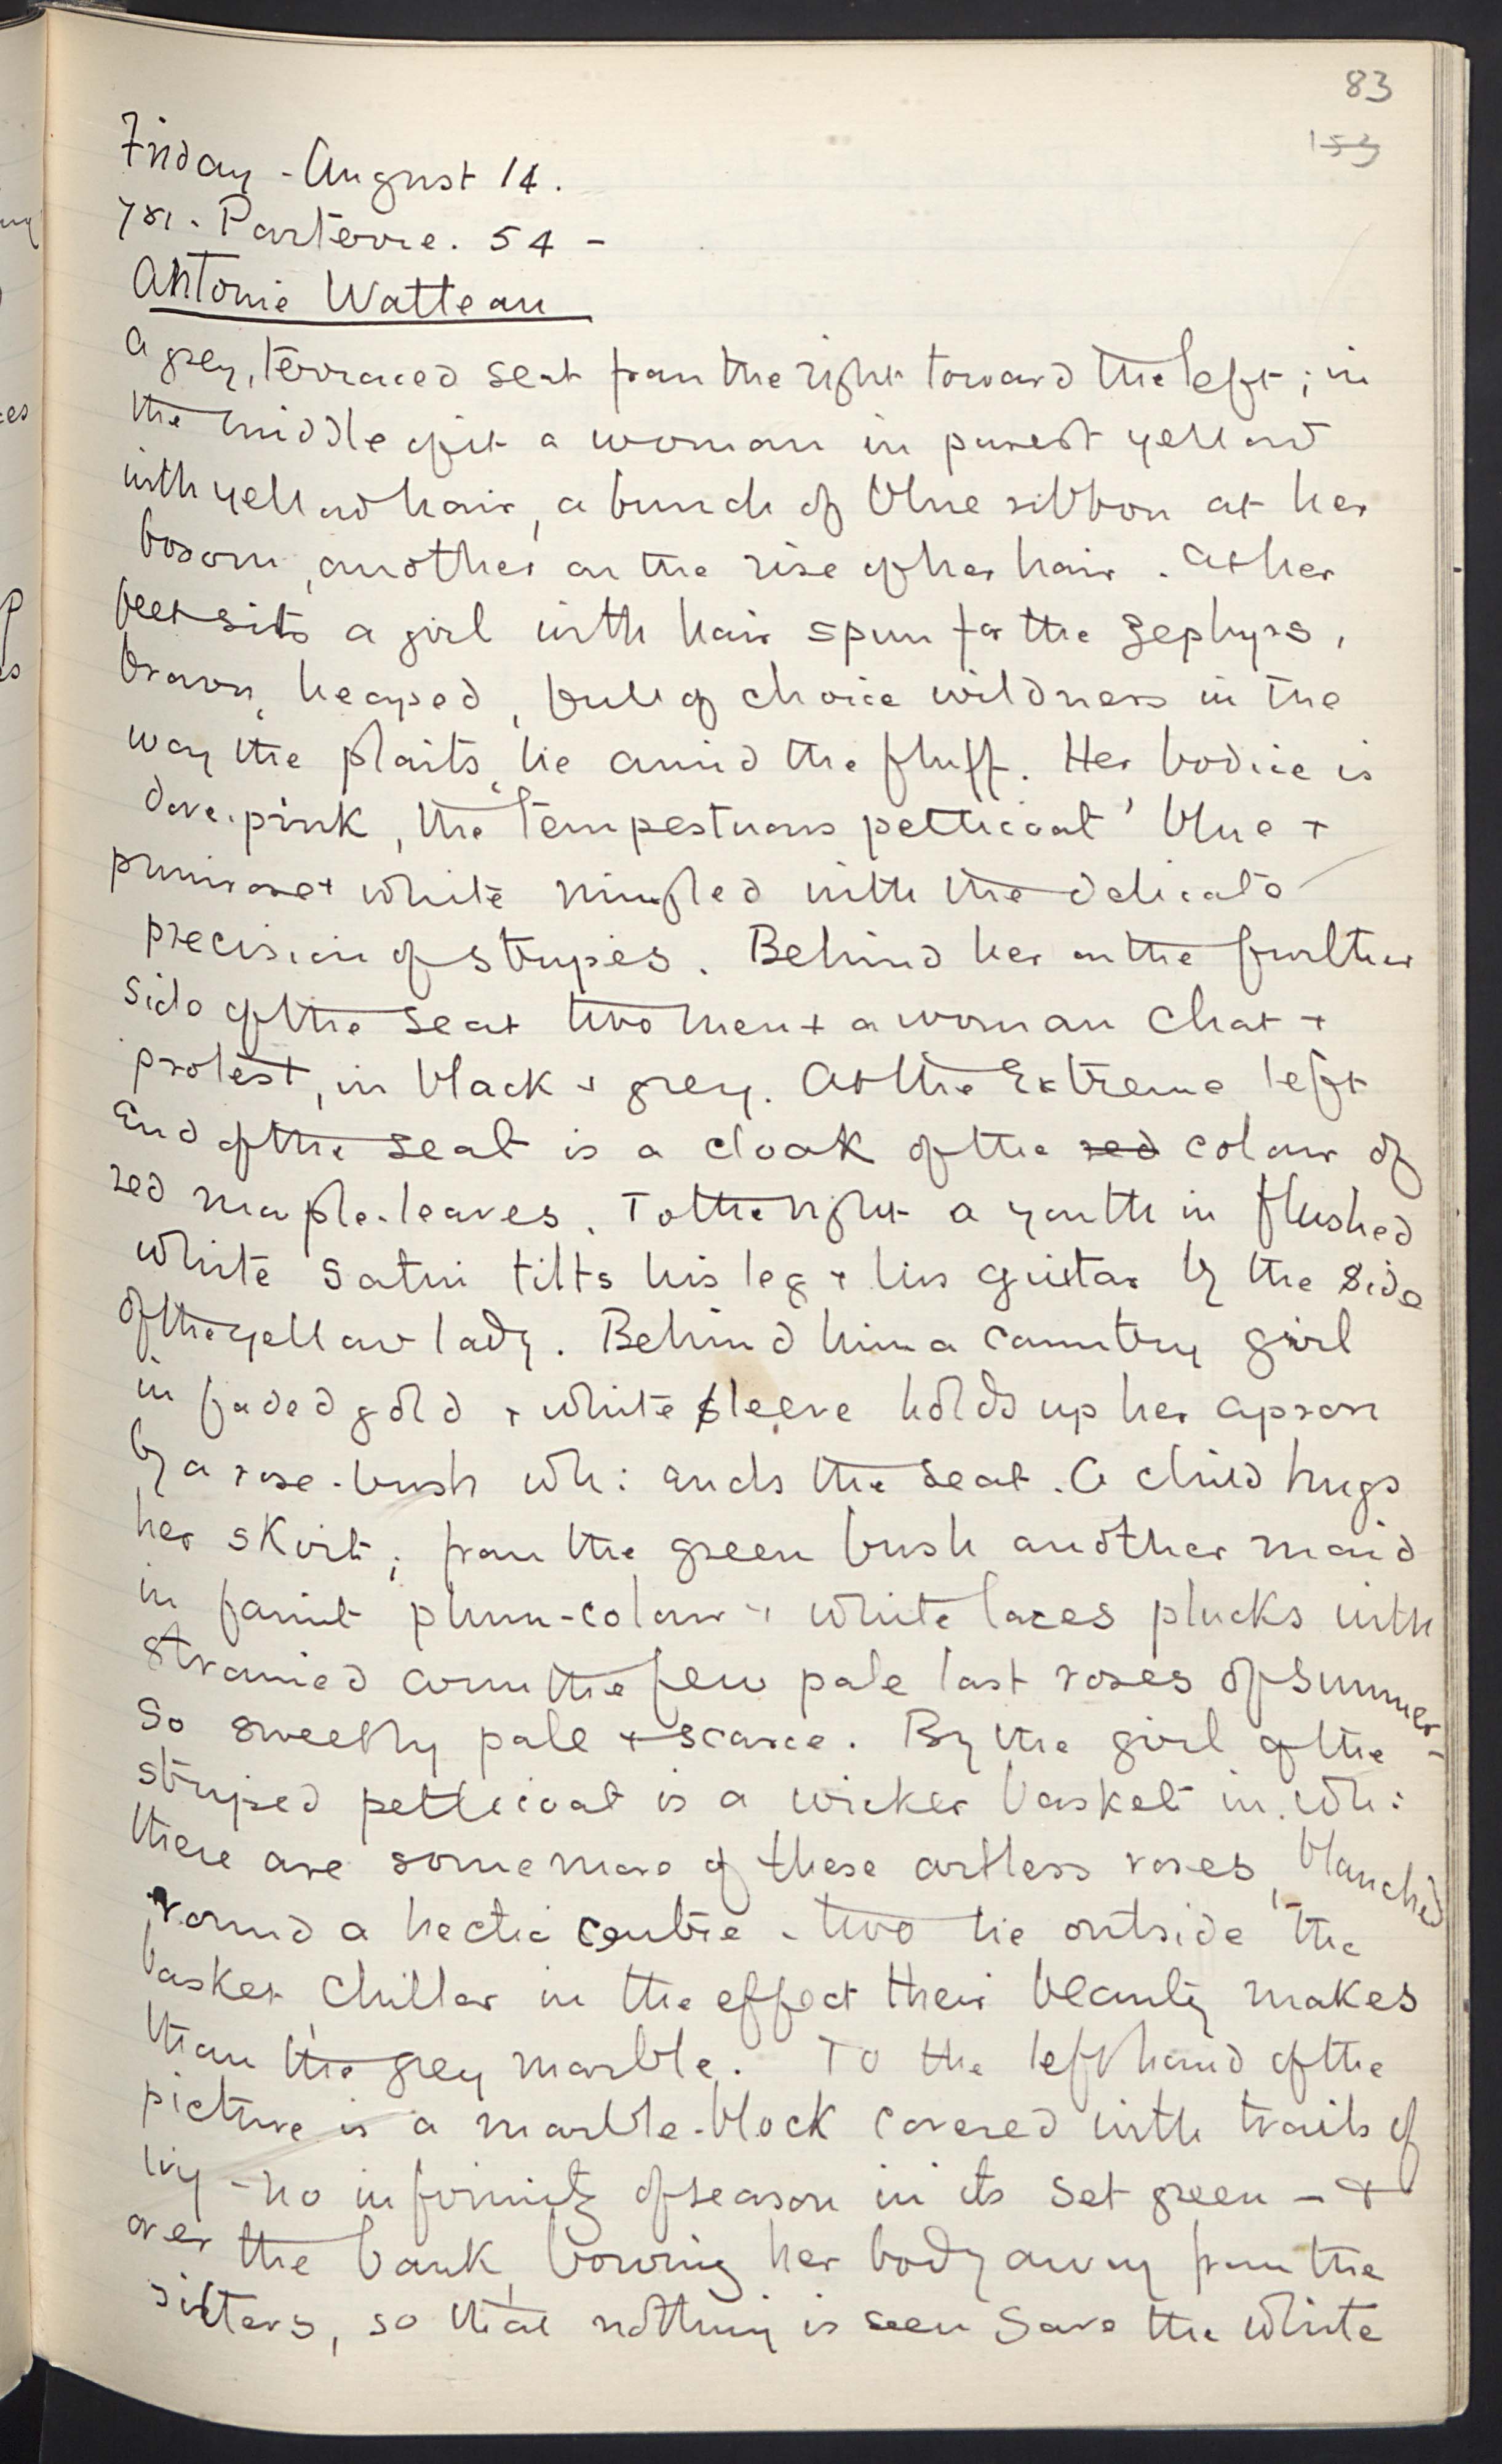 83
153
Friday - August 14.
781. Parterre. 54 -
Antonie Watteau
A grey, terraced seat from the right toward the left; in
the middle of it a woman in purest yellow
with yellow hair, a bunch of blue ribbon at her
bosom, another on the rise of her hair. At her
feet sits a girl with hair spun for the Zephyrs,
brown, heaped, full of choice wildness in the
way the plaits lie amid the fluff. Her bodice is
dove-pink, the 'tempestuous petticoat' blue +
primrose + white mingled with the delicate
precision of stripes. Behind her on the further
side of the seat two men + a woman chat +
protest, in black + grey. At the extreme left
end of the seat is a cloak of the red colour of
red maple-leaves. To the right a youth in flushed
white satin tilts his leg + his guitar by the side
of the yellow lady. Behind him a country girl
in faded gold + white sleeve holds up her apron
by a rose-bush wh: ends the seat. A child hugs
her skirt; from the green bush another maid
in faint plum-colour + white laces plucks with
strained arm the few pale last roses of summer -
so sweetly pale + scarce. By the girl of the
striped petticoat is a wicker basket in wh:
there are some more of these artless roses, blanched
round a hectic centre - two lie outside the
basket, chiller in the effect their beauty makes
than the grey marble. To the left hand of the
picture is a marble-block covered with trails of
ivy - no infirmity of season in its set green - +
over the bank, bowing her body away from the
sitters, so that nothing is seen save the white